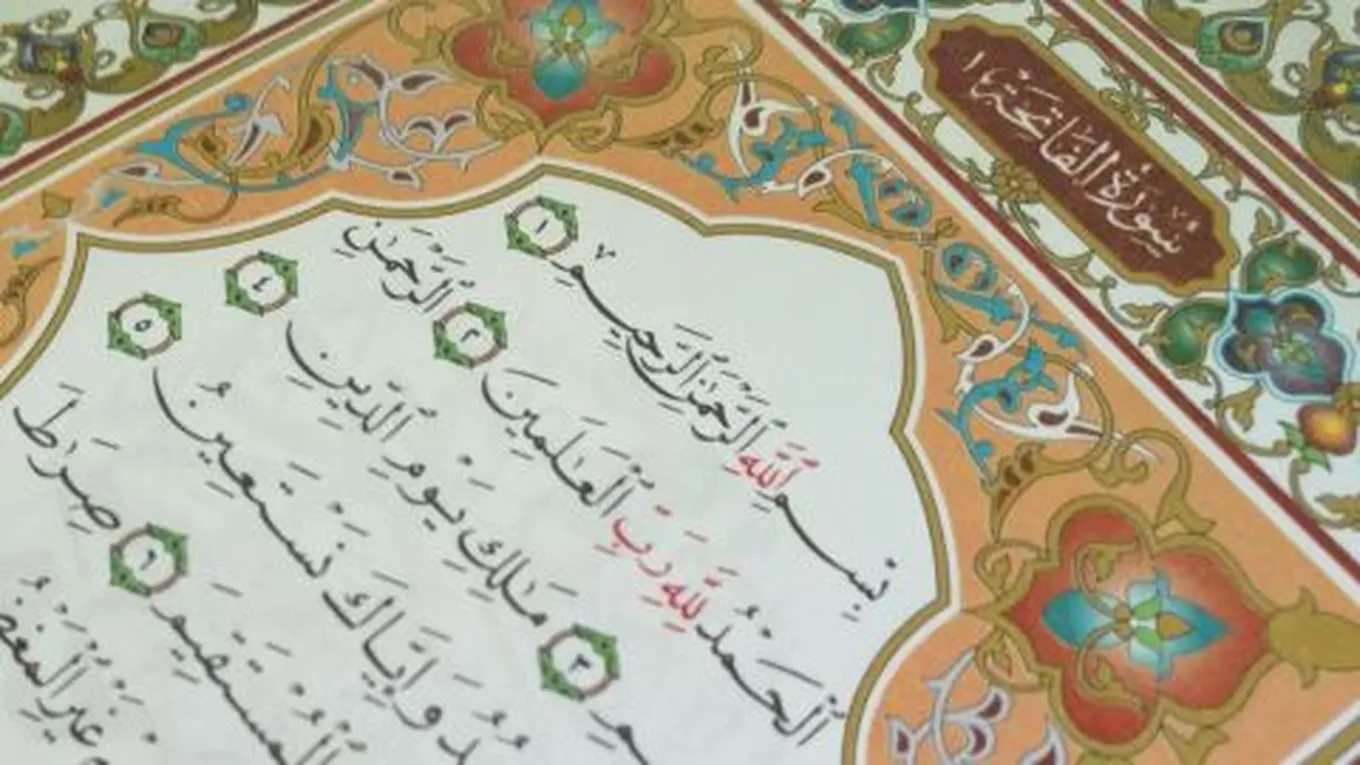 سُورَةُ الفَاتِحَةِ ١
بِسْمِ ٱللَّهِ ٱلرَّحْمَٰنِ ٱلرَّحِيمِ ١
ٱلْحَمْدُ لِلَّهِ رَبِّ ٱلْعَٰلَمِينَ ٢ ٱلرَّحْمَٰنِ
٣ مَٰلِكِ يَوْمِ ٱلدِّينِ ٤
وَإِيَّاكَ نَسْتَعِينُ ٥
ٱلْمُسْتَقِيمَ ٦ صِرَٰطَ
غَيْرِ